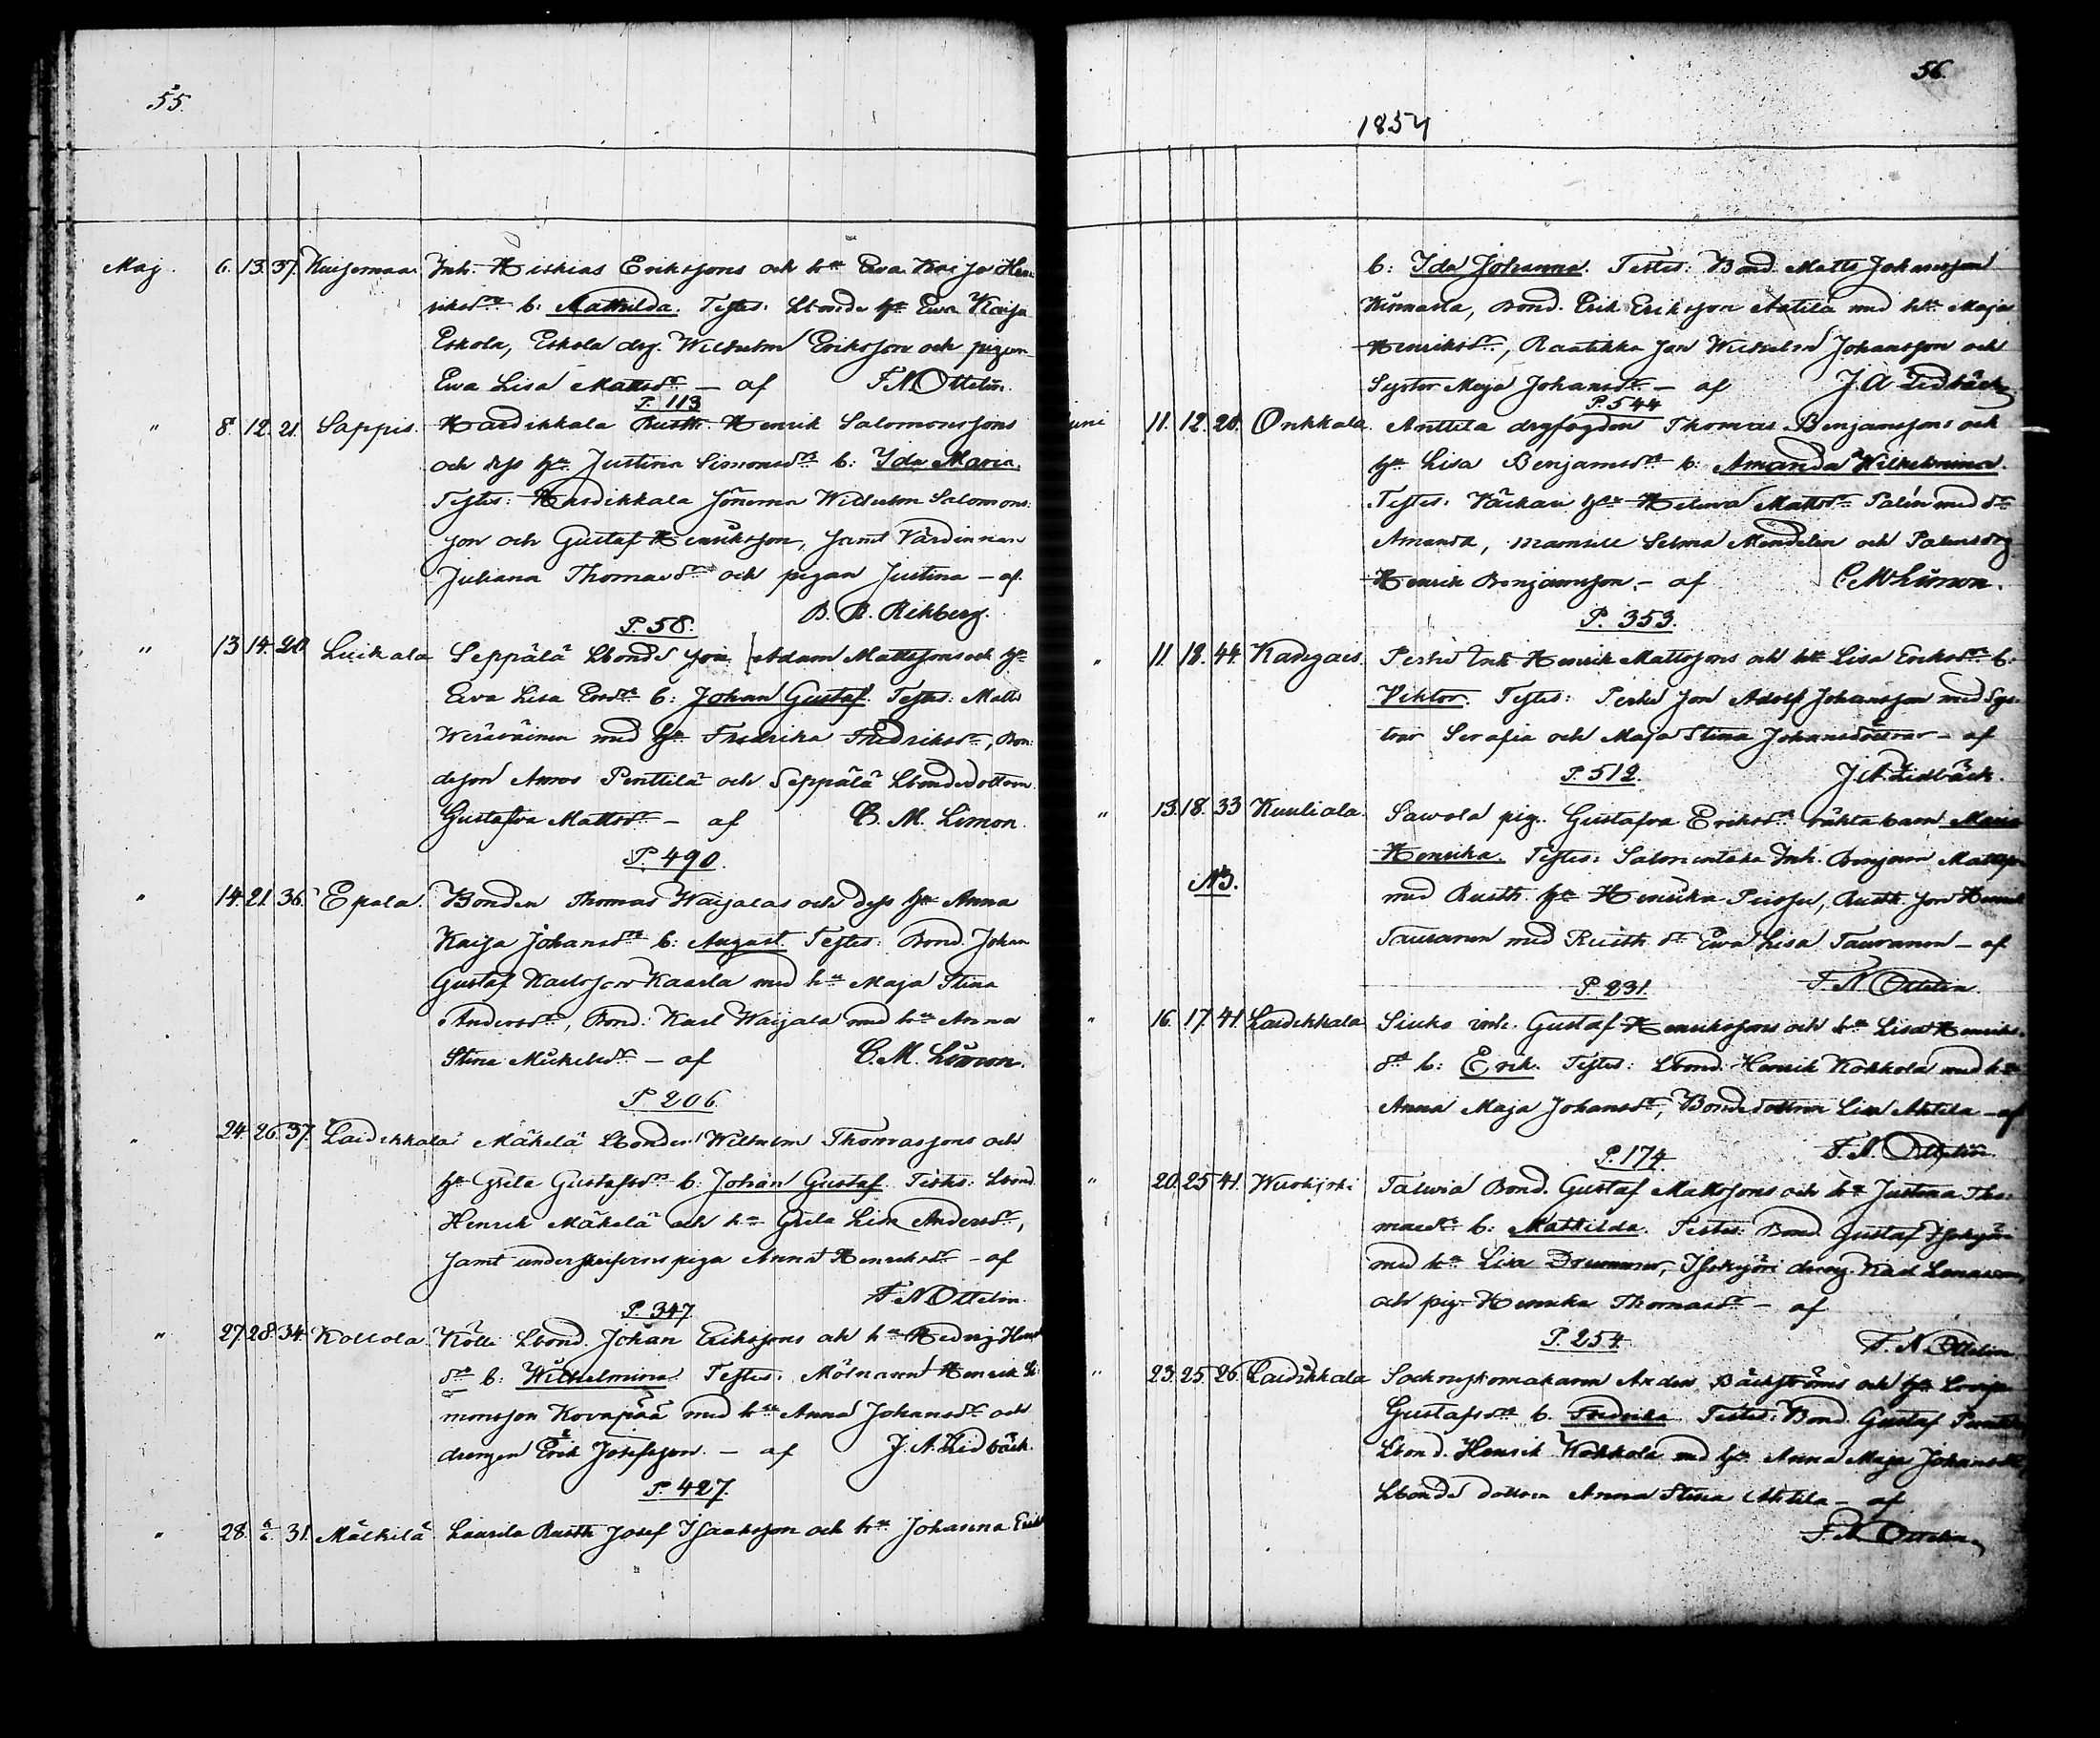 55.
Maj. 6. 13. 37. Kuisemaa. Inh. Hiskias Erikssons och h:u Eva Kaisa Hen-
riksd:r b: Mathilda. Testes: Lbonde h:u Eva Kaisa
Eskola, Eskola drg. Wilhelm Eriksson och pigan
Eva Lisa Mattsd:r — af F. N. Ottelin.
P. 113
" 8. 12. 21. Sappis. Hardikkala Rusth. Henrik Salomonssons
och dess h:u Justina Simonsd:r b: Ida Maria.
Testes: Hardikkala Sönerna Wilhelm Salomons-
son och Gustaf Henriksson, samt Värdinnan
Juliana Thomasd:r och pigan Justina — af
B. R. Rikberg.
P. 58.
" 13. 14. 20. Luikala Seppälä Lbonds son Adam Mattssons och h:u
Eva Lisa Ersd:r b: Johan Gustaf. Testes: Matts
med h:u Fredrika Fredriksd:r, Bon-
deson Amos Penttilä och Seppälä Lbondedottern
Gustafva Mattsd:r — af C. M. Limon.
P. 490.
" 14. 21. 36. Epala. Bonden Thomas Waijalas och dess h:u Anna
Kaisa Johansd:r b: August. Testes: Bond. Johan
Gustaf Karlsson Kaarla med h:u Maja Stina
Andersd:r, Bond. Karl Waijala med h:u Anna
Stina Mickelsd:r — af C. M. Limon.
P. 206.
" 24. 26. 37. Laidikkala Mäkelä Lbonden Wilhelm Thomassons och
h:u Greta Gustafsd:r b: Johan Gustaf. Testes: Lbond.
Henrik Mäkelä och h:u Greta Lisa Andersd:r,
samt piga Anna Henriksd:r — af
F. N. Ottelin.
P. 347
" 27. 28. 34. Kollola. Kölli Lbond. Johan Erikssons och h:u Hedvig Henr-
d:r b: Wilhelmina. Testes: Mölnarn Henrik Si-
monsson Kovapää med h:u Anna Johansd:r och
drengen Erik Josefsson. — af J. A. Lidbäck.
P. 427.
" 28. 31. Mälkilä Laurila Rusth. Josef Isaaksson och h:u Johanna Eriksd:r
56.
1854
b: Ida Johanna. Testes: Bond. Matts Johansson
Kusmarla, Bond. Erik Eriksson Anttila med h:u Maja
Henriksd:r, Raatikka son Wilhelm Johansson och
Syster Maja Johansd:r — af J. A. Lidbäck.
P. 544
Juni 11. 12. 20. Onkkala. Anttila drgfogden Thomas Benjamssons och
h:u Lisa Benjamsd:r b: Amanda Wilhelmina.
Testes: h:u Helena Mattsd:r Palén med d:r
Amanda, mamsell Selma Mendelin och
Henrik Benjamsson. — af C. M. Limon.
P. 353.
" 11. 18. 44. Kangais. Perhe Inh. Henrik Mattssons och h:u Lisa Eriksd:r b:
Viktor. Testes: Perhe son Adolf Johansson med Sys-
trar Serafia och Maja Stina Johansdöttrar — af
P. 512. J. A. Lidbäck.
" 13. 18. 33. Kuuliala. Sawola pig. Gustafva Eriksd:r oäkta barn Maria
Henrika. Testes: Inh. Benjam Mattsson
NB. med Rusth. h:u Henrika Peussa, Rusth. son Henrik
Tauranen med Rusth. d:r Eva Lisa Tauranen — af
P. 231. F. N. Ottelin.
" 16. 17. 41. Laidikkala Siuko inh. Gustaf Henrikssons och h:u Lisa Henriks-
d:r b: Erik. Testes: Lbond. Henrik Kokkola med h:u
Anna Maja Johansd:r, Bondedottren Lisa Anttila — af
P. 174. F. N. Ottelin.
" 20. 25. 41. Bond. Gustaf Mattssons och h:u Justina Tho-
masd:r b: Mathilda. Testes: Bond. Gustaf Isokyrö
med h:u Lisa Drummer, Isokyrö dreng. Karl
och pig. Henrika Thomasd:r — af
P. 254. F. N. Ottelin.
" 23. 25. 26. Laidikkala Sockneskomakaren Anders Bäckströms och h:u Lovisa
Gustafsd:r b. Fredrika. Testes: Bond. Gustaf
Lbond. Henrik Kokkola med h:u Anna Maja Johansd:r,
Lbonds dottren Anna Stina Anttila — af
F. N. Ottelin.